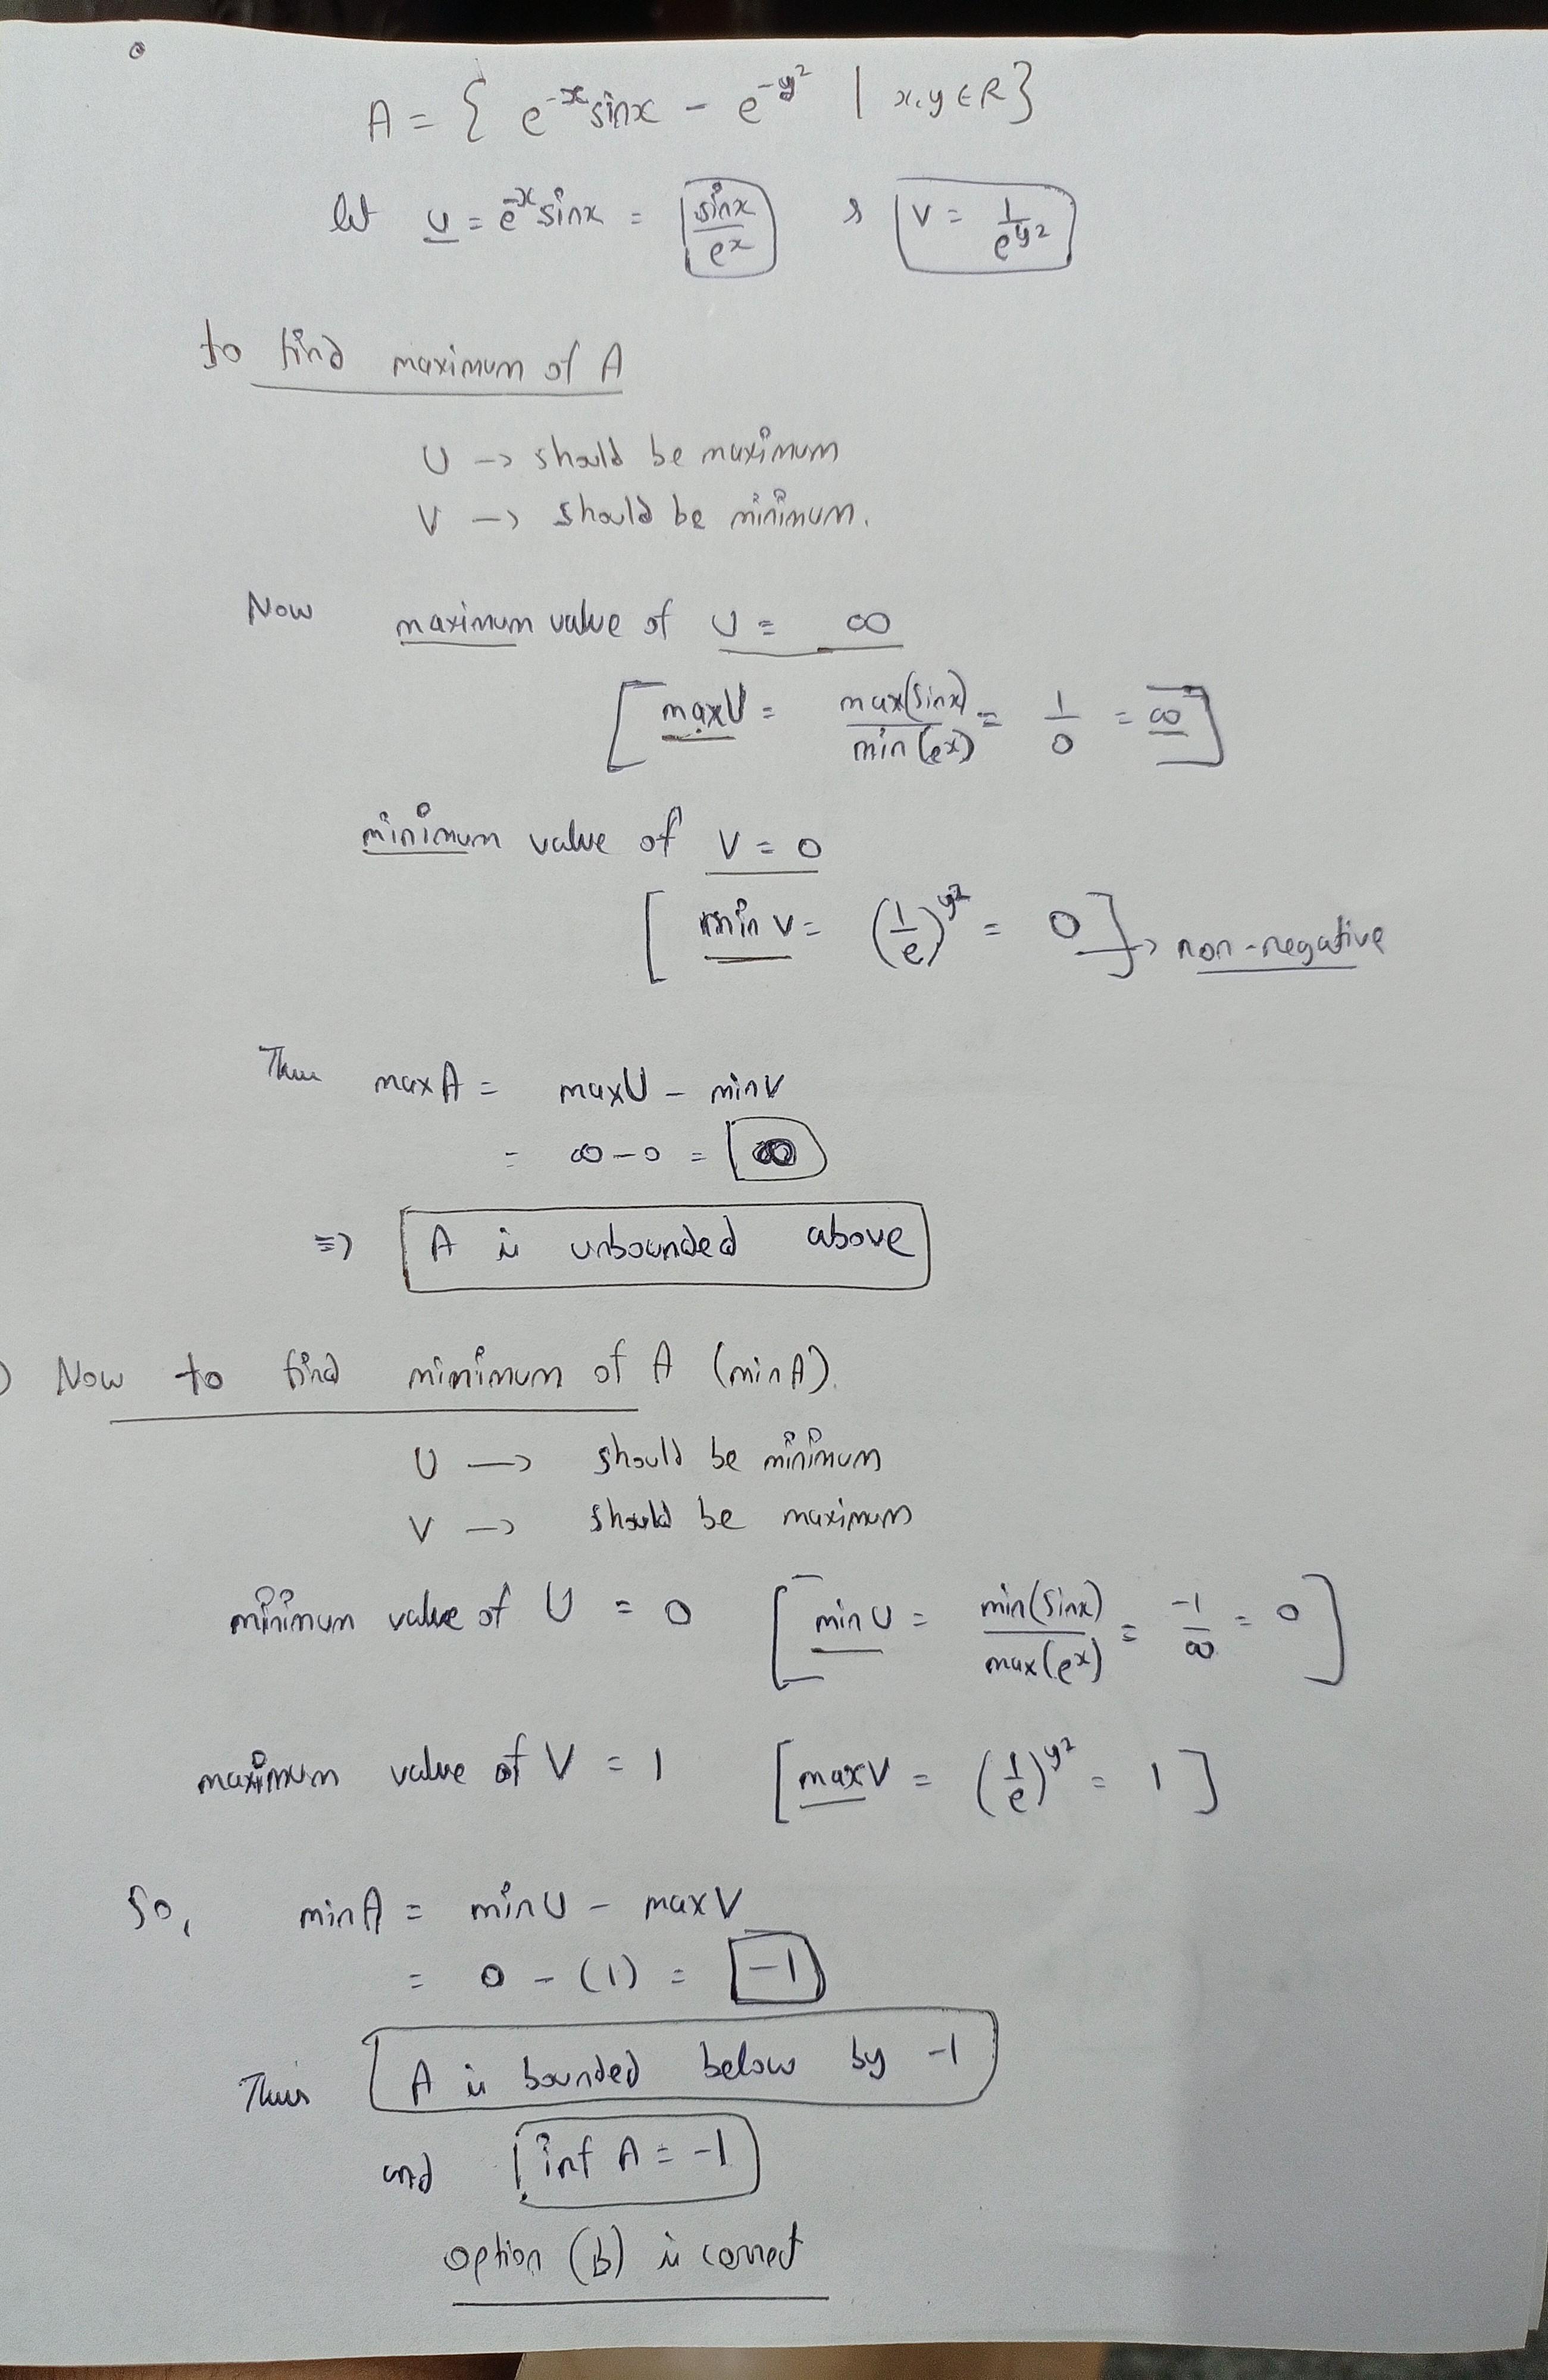 A = { e^-x sinx - e^-y² | x,y ∈ R}
let u = e^-x sinx = sinx/e^x & V = 1/e^y²
to find maximum of A
U → should be maximum
V → should be minimum.
Now maximum value of U = ∞
[ maxU = max(sinx)/min(e^x) = 1/0 = ∞ ]
minimum value of V = 0
[ min v = (1/e)^y² = 0 ] → non-negative
Thus maxA = maxU - minV
= ∞ - 0 = ∞
⇒ A is unbounded above
) Now to find minimum of A (minA).
U → should be minimum
V → should be maximum
minimum value of U = 0 [ min U = min(sinx)/max(e^x) = -1/∞ = 0 ]
maximum value of V = 1 [ maxV = (1/e)^y² = 1 ]
So, minA = minU - maxV
= 0 - (1) = -1
Thus A is bounded below by -1
and inf A = -1
option (b) is correct